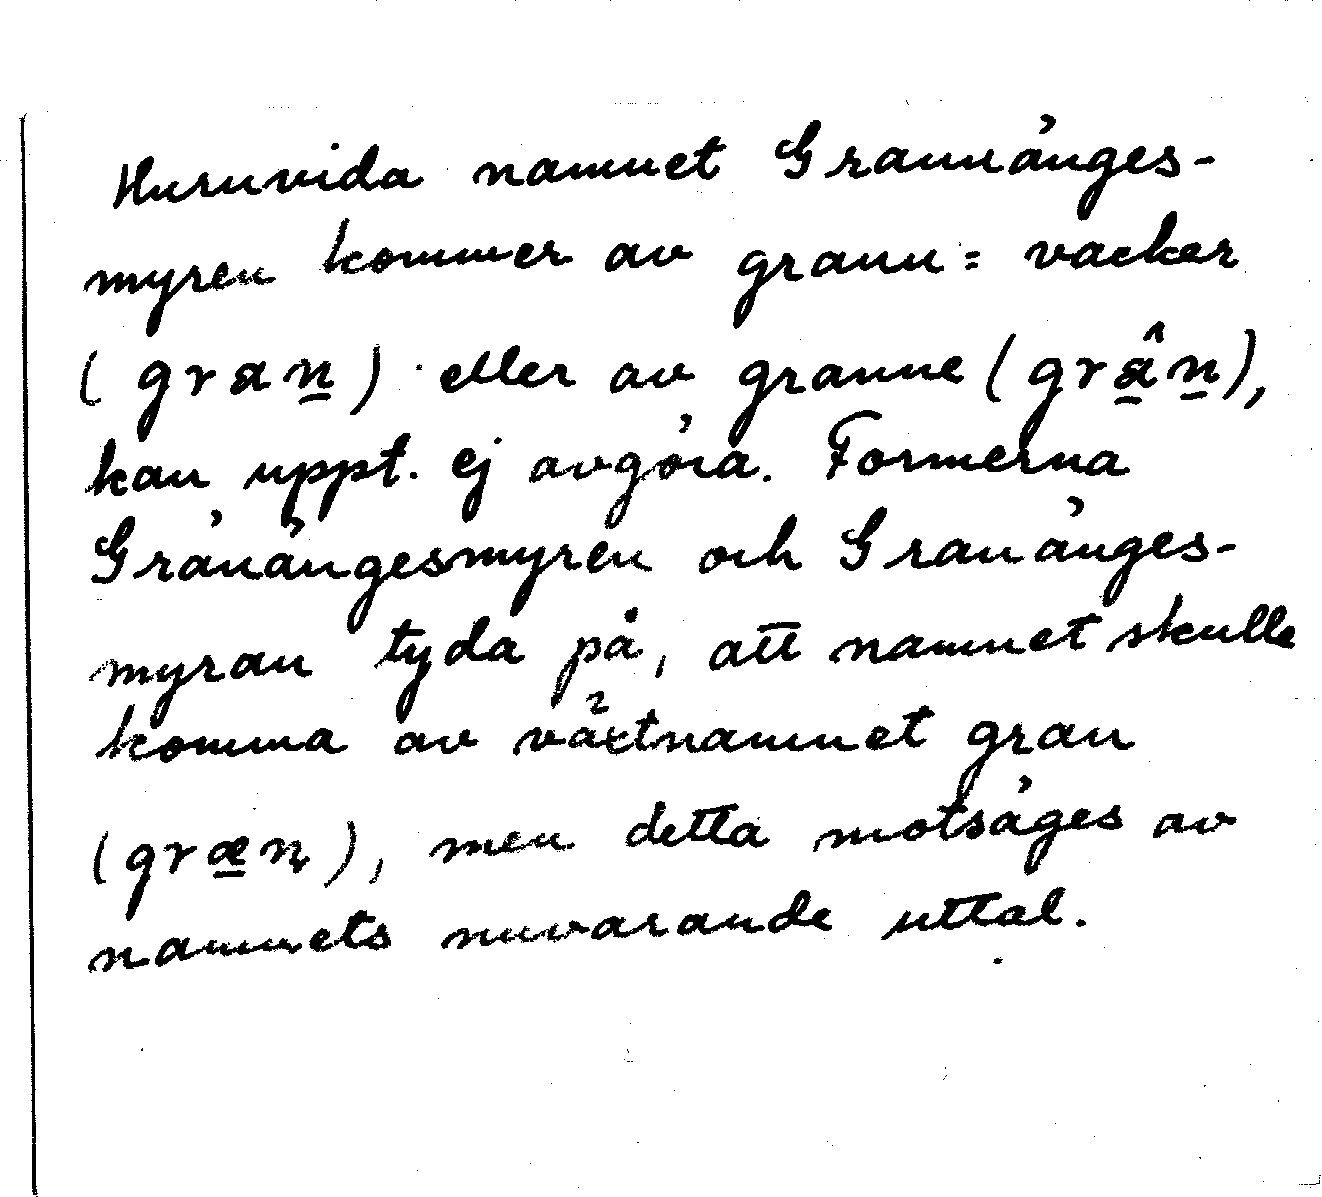 Huruvida namnet Grannänges-
myren kommer av grann = vacker
(gran̲) eller av granne (grâ̲n̲),
kan uppt. ej avgöra. Formerna
Gränängesmyren och Grananges-
myran tyda på, att namnet skulle
komma av växtnamnet gran
(græ̲n), men detta motsäges av
namnets nuvarande uttal.